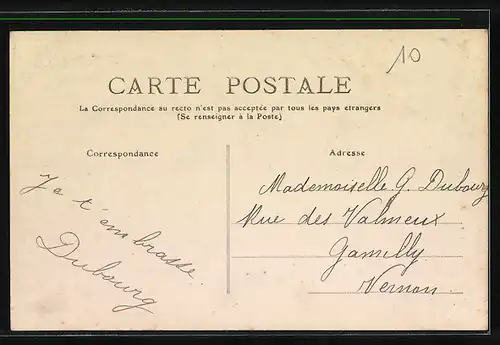 10
CARTE POSTALE
La Correspondance au recto n'est pas acceptée par tous les pays etrangers
(Se renseigner à la Poste)
Correspondance
Je t'embrasse.
Dubourg
Adresse
Mademoiselle G. Dubourg
Rue des Valmeux
Gamilly
Vernon.